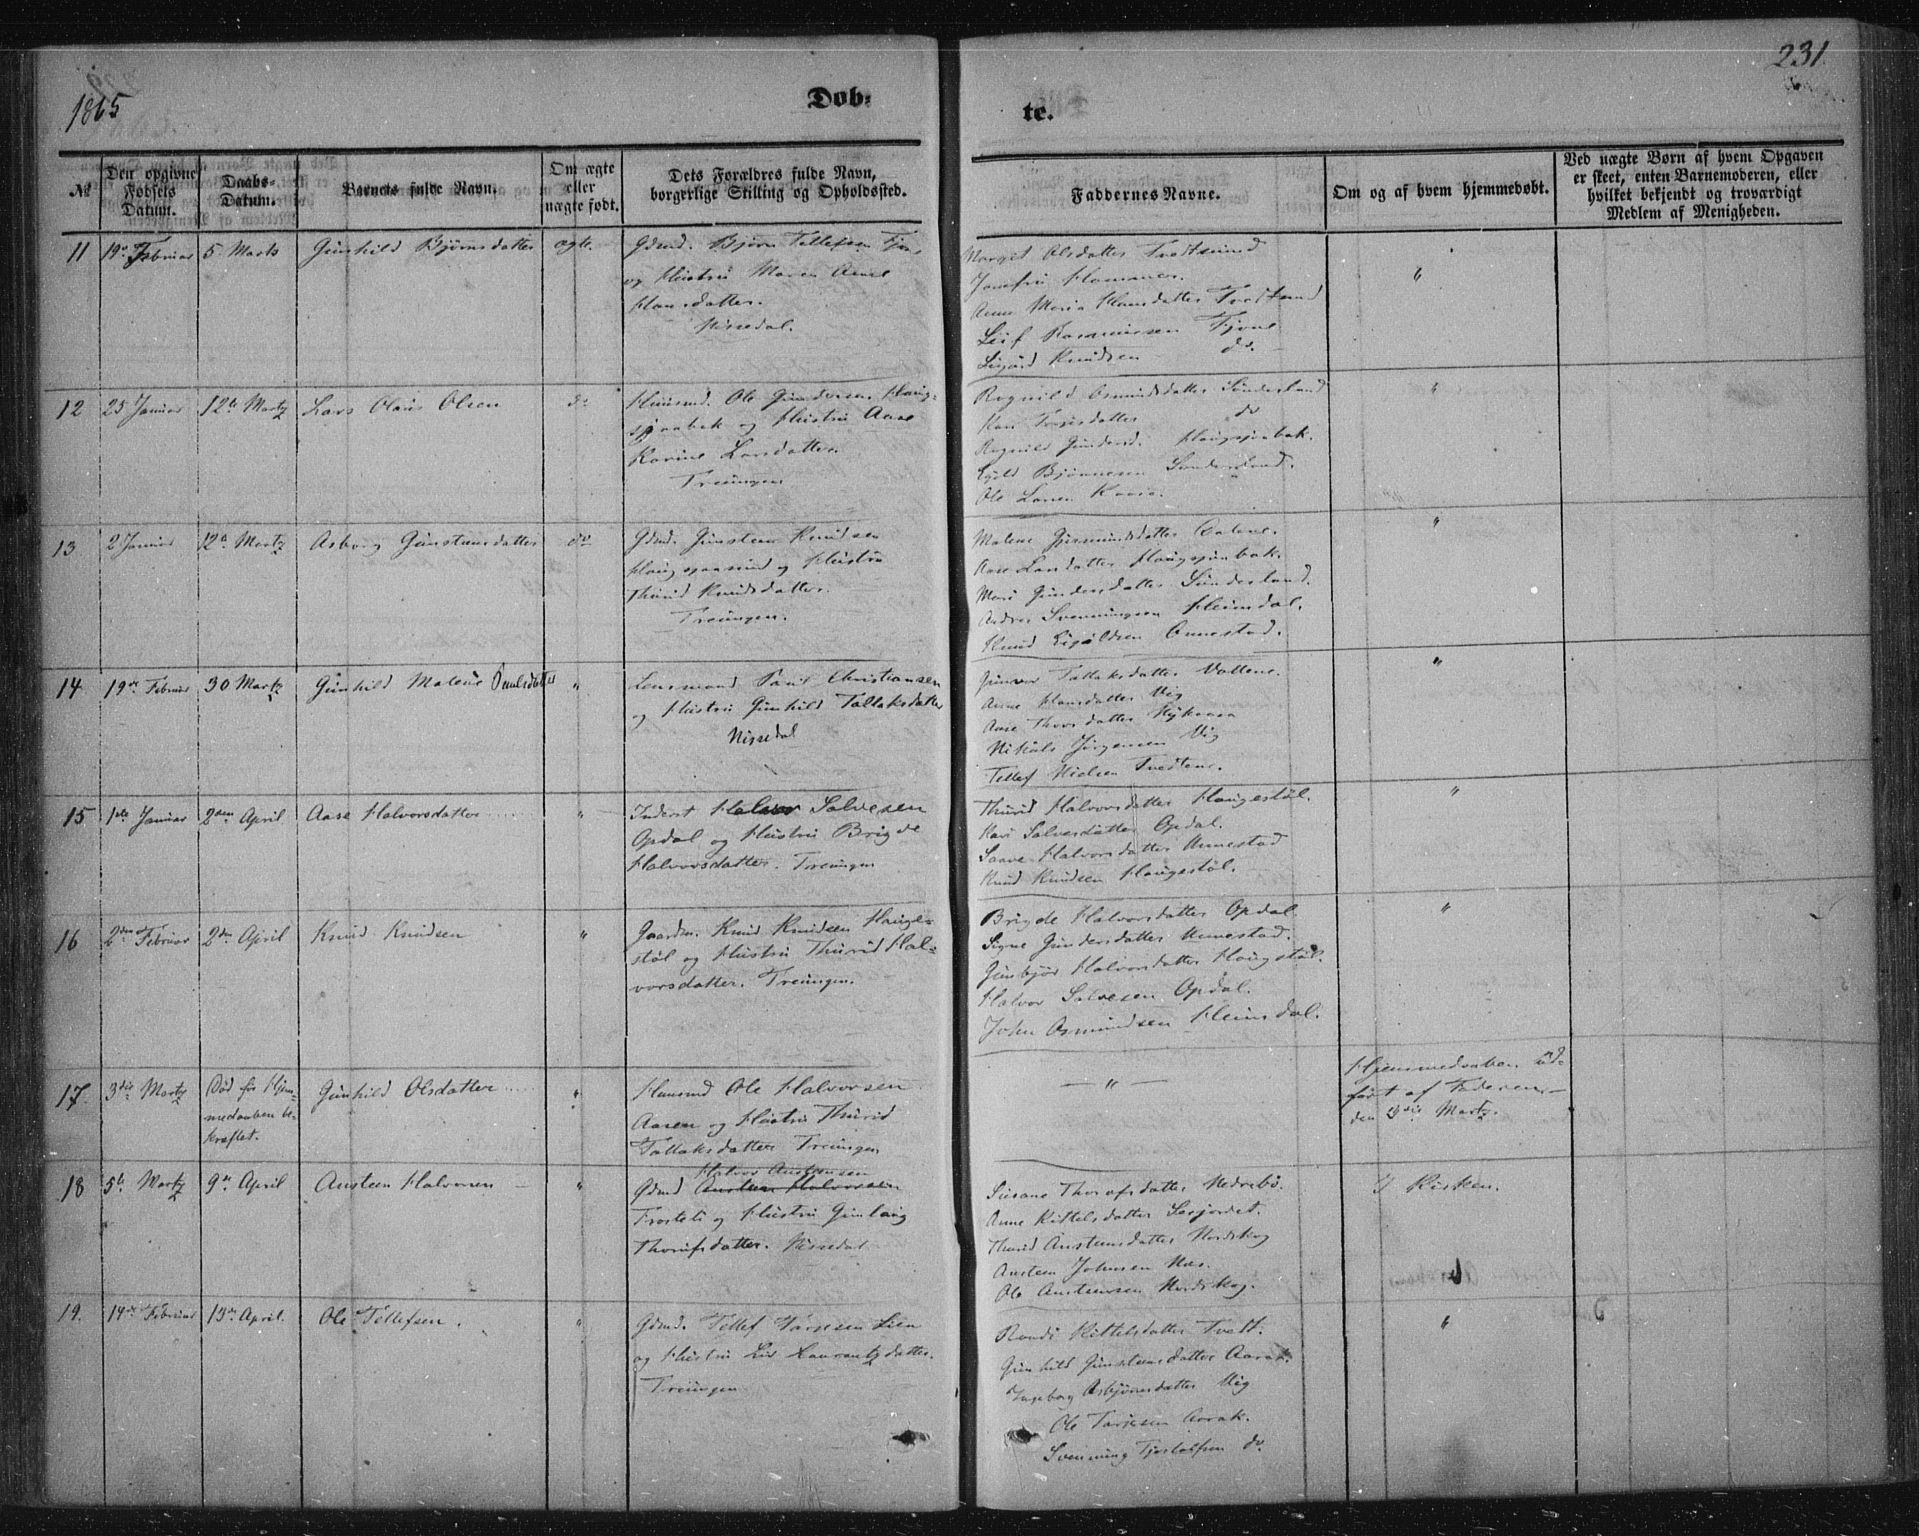 1865
Døb-
te.
231
№
Den opgivne Fødsels Datum.
Daabs-Datum.
Barnets fulde Navn.
Om ægte eller uægte født.
Dets Forældres fulde Navn, borgerlige Stilling og Opholdssted.
Faddernes Navne.
Om og af hvem hjemmedøbt.
Ved uægte Børn af hvem Opgaven er skeet, enten Barnemoderen, eller hvilket bekjendt og troværdigt Medlem af Menigheden.
11 19de Februar 5 Marts Gunhild Bjørnsdatter ægte.
Gdmd. Bjørn Tellefsen
og Hustru Maren Anne
Hansdatter.
Nissedal.
Margit Olsdatter Tvedtsund
Anne Maria Hansdatter Tvedtsund
Leif Rasmussen Fjone
Sigurd Knudsen do.
"
12 25 Januar 12te Marts Lars Olaus Olsen do
Huusmd. Ole Gundersen Haug-
sjaabak og Hustru Aase
Karine Larsdatter.
Treungen
Ragnild Osmundsdatter Sünderland
Kari Tarjesdatter do
Ragnild Gundersd. Haugsjaabak.
Eyvld Bjørnesen Sünderland.
Ole Larsen
"
13 2 Januar 12te Marts Asborg Gunstensdatter do
Gdmd. Gunsten Knudsen
Haugsjaasund og Hustru
Thurid Knudsdatter.
Treungen.
Malene Gjermundsdatter
Aase Larsdatter Haugsjaabak.
Mari Gundersdatter Sünderland.
Andres Svenningsen Heimdal.
Knud Annestad.
"
14 19de Februar 30 Marts Gunhild Malene Paulsdatter "
Lensmand Paul Christiansen
og Hustru Gunhild Tallaksdatter
Nissedal
Gunvor Tallaksdatter
Anne Hansdatter Vig
Aase Thorsdatter
Nikuls Jørgensen Vig
Tellef Nielsen Tvedtene.
"
15 1ste Januar 2den April Aase Halvorsdatter "
Inderst Halvor Salvesen
Opdal og Hustru Brigde
Halvorsdatter. Treungen
Thurid Halvorsdatter Haugestøl.
Kari Salvesdatter Opdal.
Halvorsdatter Annestad
Knud Knudsen Haugestøl.
"
16 2den Februar 2den April Knud Knudsen "
Gaardm. Knud Knudsen Hauge-
støl og Hustru Thurid Hal-
vorsdatter. Treungen.
Brigde Halvorsdatter Opdal
Signe Gundersdatter Annestad.
Gunbjør Halvorsdatter Haugestøl.
Halvor Salvesen Opdal.
John Osmundsen Heimdal.
"
17. 3die Marts Død før Hjem-
medaaben be-
kræftet.
Gunhild Olsdatter "
Huusmd Ole Halvorsen
Aasen og Hustru Thurid
Tallaksdatter Treungen
— " —
Hjemmedaaben ud-
ført af Faderen
den 3die Marts.
18 5te Marts 9de April Austeen Halvorsen "
Halvor Austensen
Gdmd Austeen Halvorsen
Frosteli og Hustru Gunlaug
Thorufsdatter. Nissedal
Susane Thorufsdatter Nedrebø.
Anne Kittelsdatter
Thurid Austeensdatter Nordskog
Austeen Johnsen Næs.
Ole Austensen Nordskog.
I Kirken.
19. 14de Februar 13de April. Ole Tellefsen. "
Gdmd. Tellef Tarjesen Lien
og Hustru Liv Laurantzdatter.
Treungen
Randi Kittelsdatter Tveit.
Gunhild Gunstensdatter Aarak.
Ingeborg Asbjørnsdatter Vig
Ole Tarjesen Aarak.
Svenning Tjostolfsen do.
"